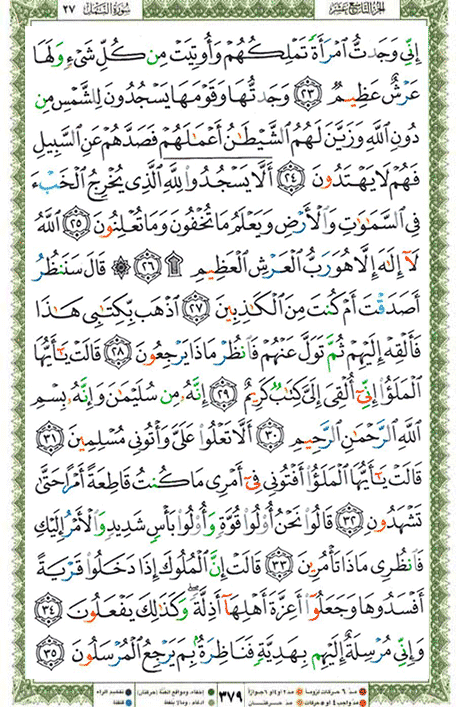 الجزء التاسع عشر سورة النمل ٢٧
إِنِّي وَجَدتُّ ٱمْرَأَةً تَمْلِكُهُمْ وَأُوتِيَتْ مِن كُلِّ شَىْءٍ وَلَهَا
عَرْشٌ عَظِيمٌ ٢٣ وَجَدتُّهَا وَقَوْمَهَا يَسْجُدُونَ لِلشَّمْسِ مِن
دُونِ ٱللَّهِ وَزَيَّنَ لَهُمُ ٱلشَّيْطَٰنُ أَعْمَٰلَهُمْ فَصَدَّهُمْ عَنِ ٱلسَّبِيلِ
فَهُمْ لَا يَهْتَدُونَ ٢٤ أَلَّا يَسْجُدُوا۟ لِلَّهِ ٱلَّذِى يُخْرِجُ ٱلْخَبْءَ
فِى ٱلسَّمَٰوَٰتِ وَٱلْأَرْضِ وَيَعْلَمُ مَا تُخْفُونَ وَمَا تُعْلِنُونَ ٢٥ ٱللَّهُ
لَآ إِلَٰهَ إِلَّا هُوَ رَبُّ ٱلْعَرْشِ ٱلْعَظِيمِ ۩ ٢٦ ۞ قَالَ سَنَنظُرُ
أَصَدَقْتَ أَمْ كُنتَ مِنَ ٱلْكَٰذِبِينَ ٢٧ ٱذْهَب بِّكِتَٰبِى هَٰذَا
فَأَلْقِهْ إِلَيْهِمْ ثُمَّ تَوَلَّ عَنْهُمْ فَٱنظُرْ مَاذَا يَرْجِعُونَ ٢٨ قَالَتْ يَٰٓأَيُّهَا
ٱلْمَلَؤُا۟ إِنِّىٓ أُلْقِىَ إِلَىَّ كِتَٰبٌ كَرِيمٌ ٢٩ إِنَّهُۥ مِن سُلَيْمَٰنَ وَإِنَّهُۥ بِسْمِ
ٱللَّهِ ٱلرَّحْمَٰنِ ٱلرَّحِيمِ ٣٠ أَلَّا تَعْلُوا۟ عَلَىَّ وَأْتُونِى مُسْلِمِينَ ٣١
قَالَتْ يَٰٓأَيُّهَا ٱلْمَلَؤُا۟ أَفْتُونِى فِىٓ أَمْرِى مَا كُنتُ قَاطِعَةً أَمْرًا حَتَّىٰ
تَشْهَدُونِ ٣٢ قَالُوا۟ نَحْنُ أُو۟لُوا۟ قُوَّةٍ وَأُو۟لُوا۟ بَأْسٍ شَدِيدٍ وَٱلْأَمْرُ إِلَيْكِ
فَٱنظُرِى مَاذَا تَأْمُرِينَ ٣٣ قَالَتْ إِنَّ ٱلْمُلُوكَ إِذَا دَخَلُوا۟ قَرْيَةً
أَفْسَدُوهَا وَجَعَلُوٓا۟ أَعِزَّةَ أَهْلِهَآ أَذِلَّةً ۖ وَكَذَٰلِكَ يَفْعَلُونَ ٣٤
وَإِنِّى مُرْسِلَةٌ إِلَيْهِم بِهَدِيَّةٍ فَنَاظِرَةٌۢ بِمَ يَرْجِعُ ٱلْمُرْسَلُونَ ٣٥
مد ٦ حركات لزوما مد ٢ او ٤ او ٦ جوازا ٣٧٩ إخفاء، ومواقع الغنة (حركتان) تفخيم الراء
مد واجب ٤ او ٥ حركات مد حركتان إدغام، وما لا يلفظ قلقلة